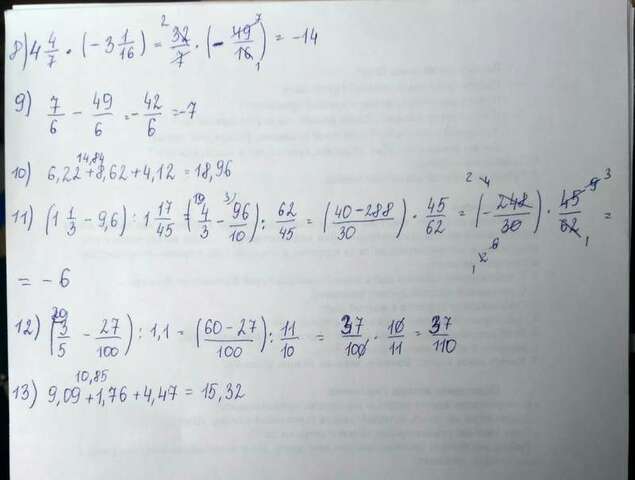 8) 4 4/7 · (-3 1/16) = 32/7 · (-49/16) = -14 2 7 1
9) 7/6 - 49/6 = -42/6 = -7
14,84
10) 6,22 + 8,62 + 4,12 = 18,96
11) (1 1/3 - 9,6) : 1 17/45 = (4/3 - 96/10) : 62/45 = (40-288)/30 · 45/62 = (-248/30) · 45/62 = 10 3) 2 4 9 3 1 2 6 1
= -6
12) (3/5 - 27/100) : 1,1 = (60-27)/100 : 11/10 = 37/100 · 10/11 = 37/110 20
10,85
13) 9,09 + 1,76 + 4,47 = 15,32